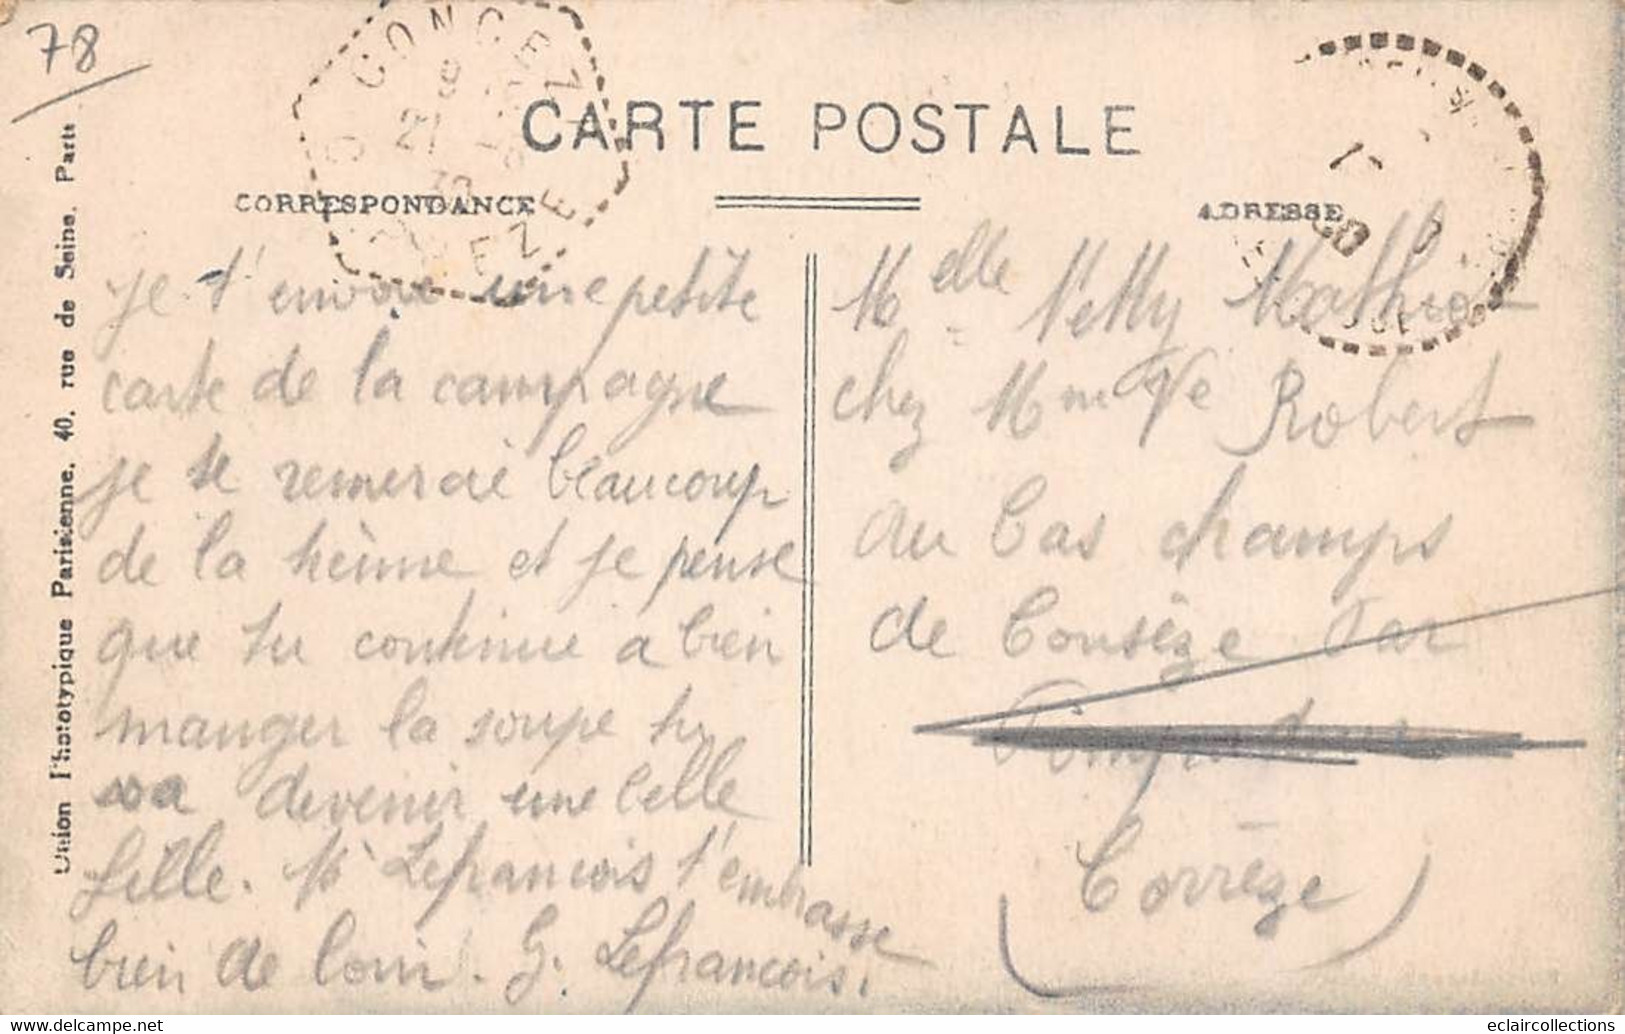 78
CARTE POSTALE
CORRESPONDANCE
ADRESSE
Union Phototypique Parisienne, 40, rue de Seine, Paris
CONCEZE
je t'envoie une petite
carte de la campagne
je te remercie beaucoup
de la tienne et je pense
que tu continue a bien
manger la soupe tu
va devenir une belle
fille. Mr Lefrancois t'embrasse
bien de loin. G. Lefrancois.
Melle Nelly Mathiot
chez Mme Ve Robert
au bas champs
de Conséze Par
Pompadour
Corrèze
eclaircollections